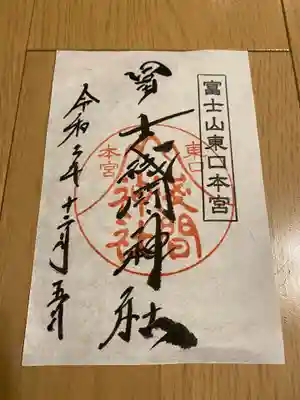 富士山東口本宮
冨士浅間神社
東口
本宮
浅間
神社
令和二年十二月五日